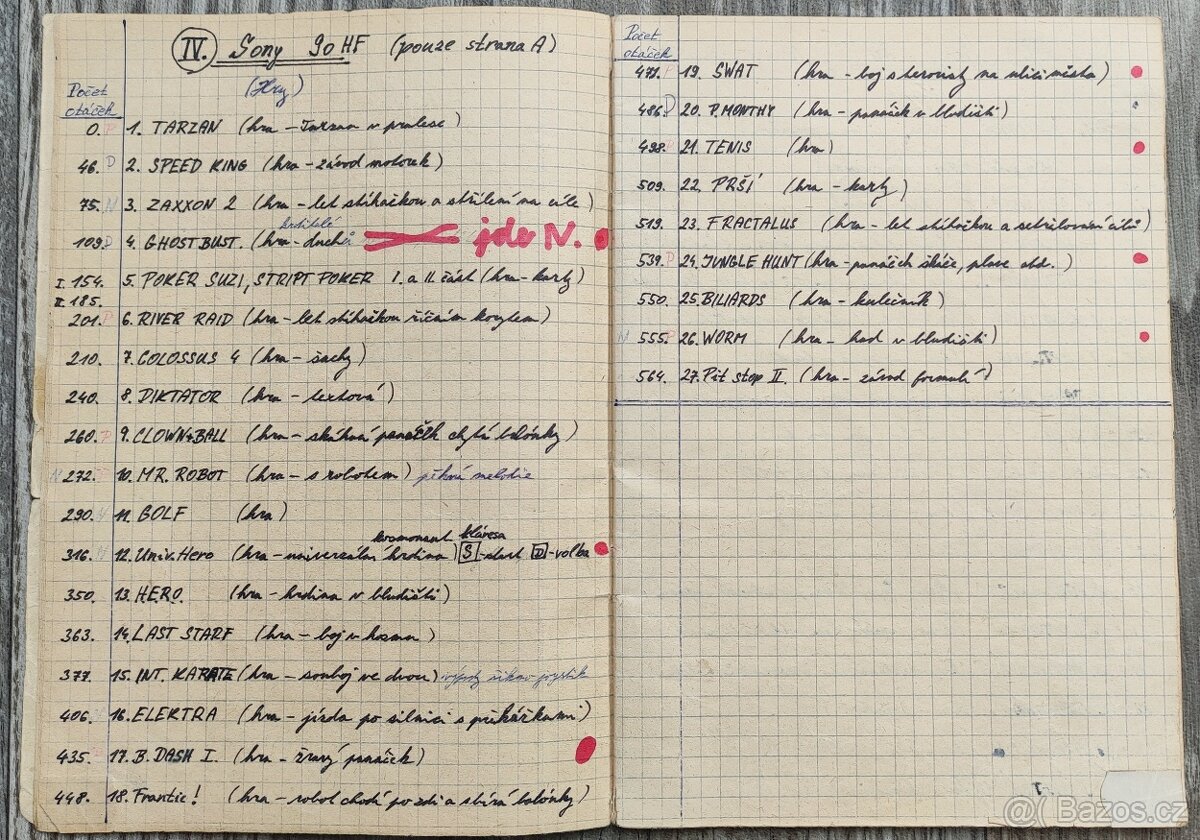 IV. Sony 90 HF (pouze strana A)
(Hry)
Počet
otáček
0. P 1. TARZAN (hra - Tarzan v pralese)
46. D 2. SPEED KING (hra - závod motorek)
75. N 3. ZAXXON 2 (hra - let stíhačkou a střílení na cíle)
krotitelé
109. D 4. GHOSTBUST. (hra - duchů jde IV.
I. 154. 5. POKER SUZI, STRIPT POKER I. a II. část (hra - karty)
II. 185.
201. P 6. RIVER RAID (hra - let stíhačkou říčním korytem)
210. 7. COLOSSUS 4 (hra - šachy)
240. 8. DIKTATOR (hra - textová)
260. P 9. CLOWN+BALL (hra - skákání panáček chytá balónky)
N 272. 10. MR. ROBOT (hra - s robotem) pěkná melodie
290. 11. GOLF (hra)
klávesa
316. 12. Univ. Hero (hra - univerzální hrdina) S -start, D -volba
350. 13. H.E.R.O. (hra - hrdina v bludišti)
363. 14. LAST STARF (hra - boj v kosmu)
377. 15. INT. KARATE (hra - souboj ve dvou) joystik
406. 16. ELEKTRA (hra - jízda po silnici s překážkami)
435. P 17. B. DASH I. (hra - žravý panáček)
448. 18. Frantic! (hra - robot chodí po zdi a sbírá balónky)
Počet
otáček
471. P 19. SWAT (hra - boj s teroristy na ulici města)
486. D 20. P. MONTHY (hra - panáček v bludišti)
498. 21. TENIS (hra)
509. 22. PRŠÍ (hra - karty)
519. 23. FRACTALUS (hra - let stíhačkou a sestřelování cílů)
539. P 24. JUNGLE HUNT (hra - panáček skáče, plave atd.)
550. 25. BILIARDS (hra - kulečník)
N 555. P 26. WORM (hra - had v bludišti)
564. 27. Pit stop II. (hra - závod formulí)
@( Bazos.cz